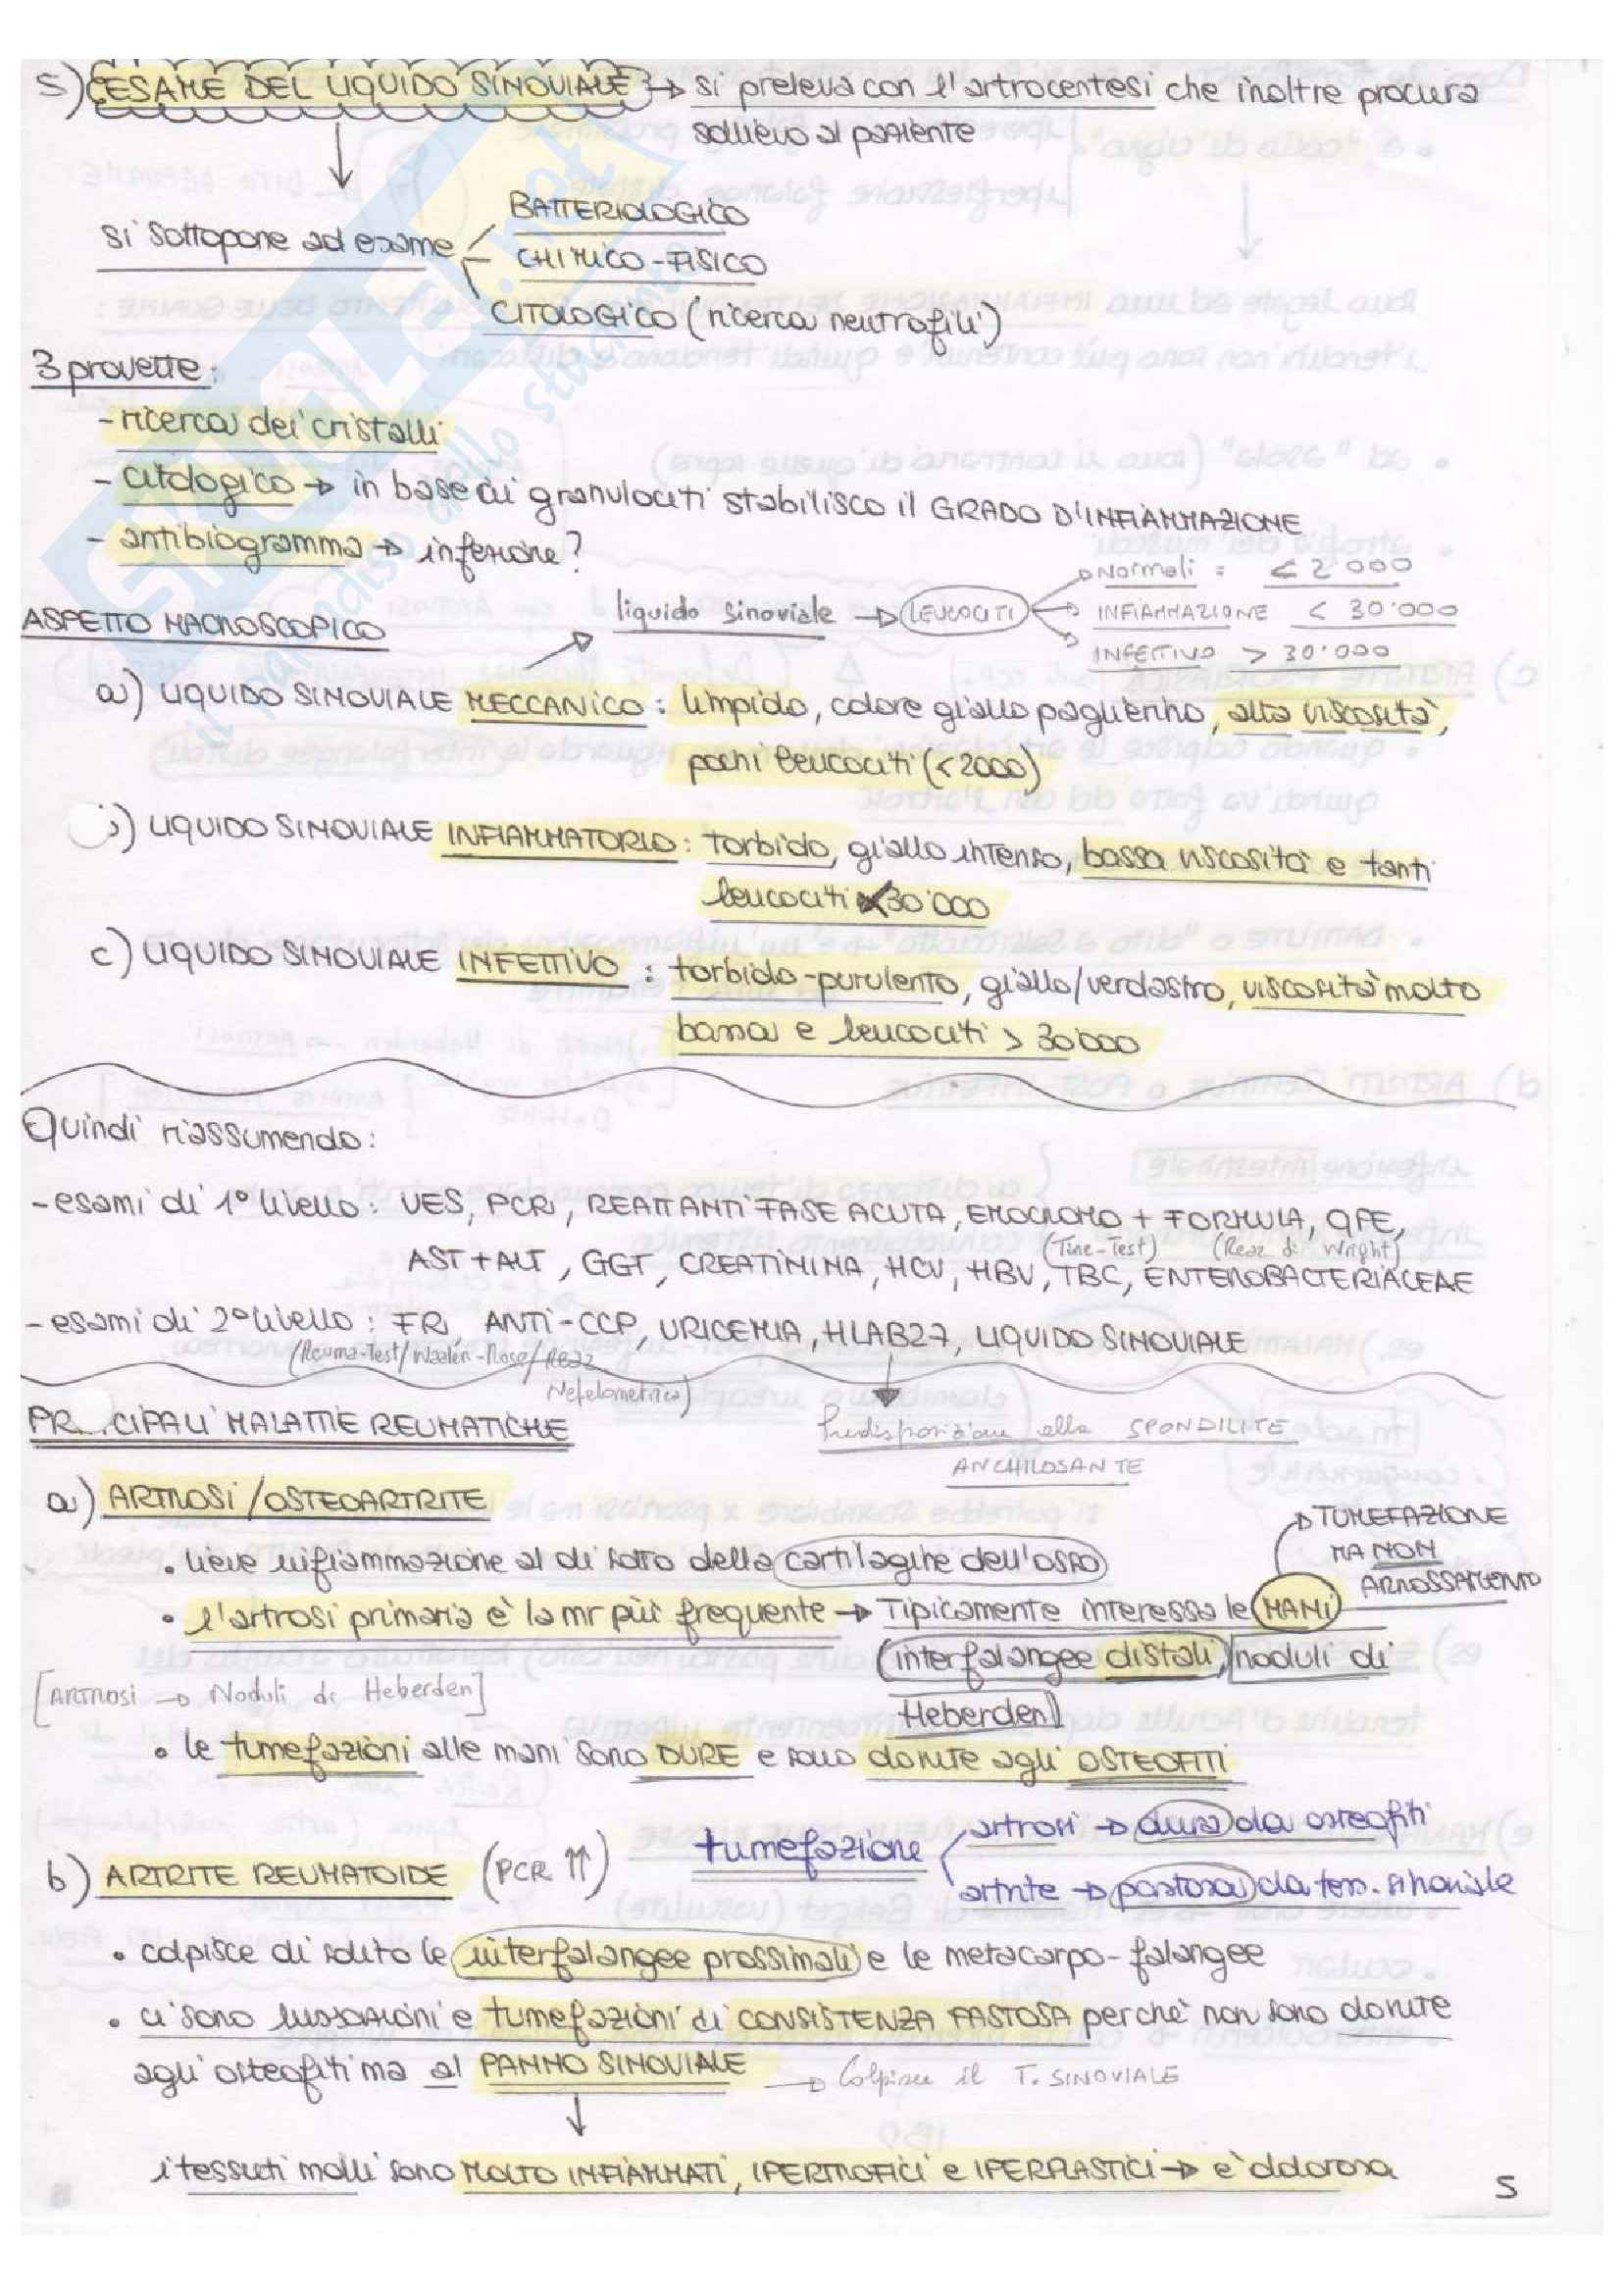 5) ESAME DEL LIQUIDO SINOVIALE → si preleva con l'artrocentesi che inoltre procura
sollievo al paziente
si sottopone ad esame
BATTERIOLOGICO
CHIMICO-FISICO
CITOLOGICO (ricerca neutrofili)
3 provette:
- ricerca dei cristalli
- citologico → in base ai granulociti stabilisco il GRADO D'INFIAMMAZIONE
- antibiogramma → infezione?
liquido sinoviale → LEUCOCITI
Normali = < 2'000
INFIAMMAZIONE < 30'000
INFETTIVO > 30'000
ASPETTO MACROSCOPICO
a) LIQUIDO SINOVIALE MECCANICO: limpido, colore giallo paglierino, alta viscosità,
pochi leucociti (<2000)
b) LIQUIDO SINOVIALE INFIAMMATORIO: torbido, giallo intenso, bassa viscosità e tanti
leucociti <30'000
c) LIQUIDO SINOVIALE INFETTIVO: torbido-purulento, giallo/verdastro, viscosità molto
bassa e leucociti > 30'000
Quindi riassumendo:
- esami di 1° livello: VES, PCR, REATTANTI FASE ACUTA, EMOCROMO + FORMULA, QPE,
(Tine-Test) (Reaz di Wright)
AST + ALT, GGT, CREATININA, HCV, HBV, TBC, ENTEROBACTERIACEAE
- esami di 2° livello: FR, ANTI-CCP, URICEMIA, HLAB27, LIQUIDO SINOVIALE
(Reuma-Test/Waaler-Rose/Reaz
Nefelometrica)
Predisposizione alla SPONDILITE
ANCHILOSANTE
PR..CIPALI MALATTIE REUMATICHE
a) ARTROSI/OSTEOARTRITE
• lieve infiammazione al di sotto della cartilagine dell'osso
→ TUMEFAZIONE
MA NON
ARROSSAMENTO
• l'artrosi primaria è la mr più frequente → Tipicamente interessa le MANI
(interfalangee distali, noduli di
Heberden)
[ARTROSI → Noduli di Heberden]
• le tumefazioni alle mani sono DURE e sono dovute agli OSTEOFITI
tumefazione
artrosi → dura da osteofiti
artrite → pastosa da tess. sinoviale
b) ARTRITE REUMATOIDE (PCR ⇈)
• colpisce di solito le interfalangee prossimali e le metacarpo-falangee
• ci sono lussazioni e tumefazioni di CONSISTENZA PASTOSA perchè non sono dovute
agli osteofiti ma al PANNO SINOVIALE → Colpisce il T. SINOVIALE
i tessuti molli sono MOLTO INFIAMMATI, IPERTROFICI e IPERPLASTICI → è dolorosa
5
SKUOLA.net
il paradiso dello studente